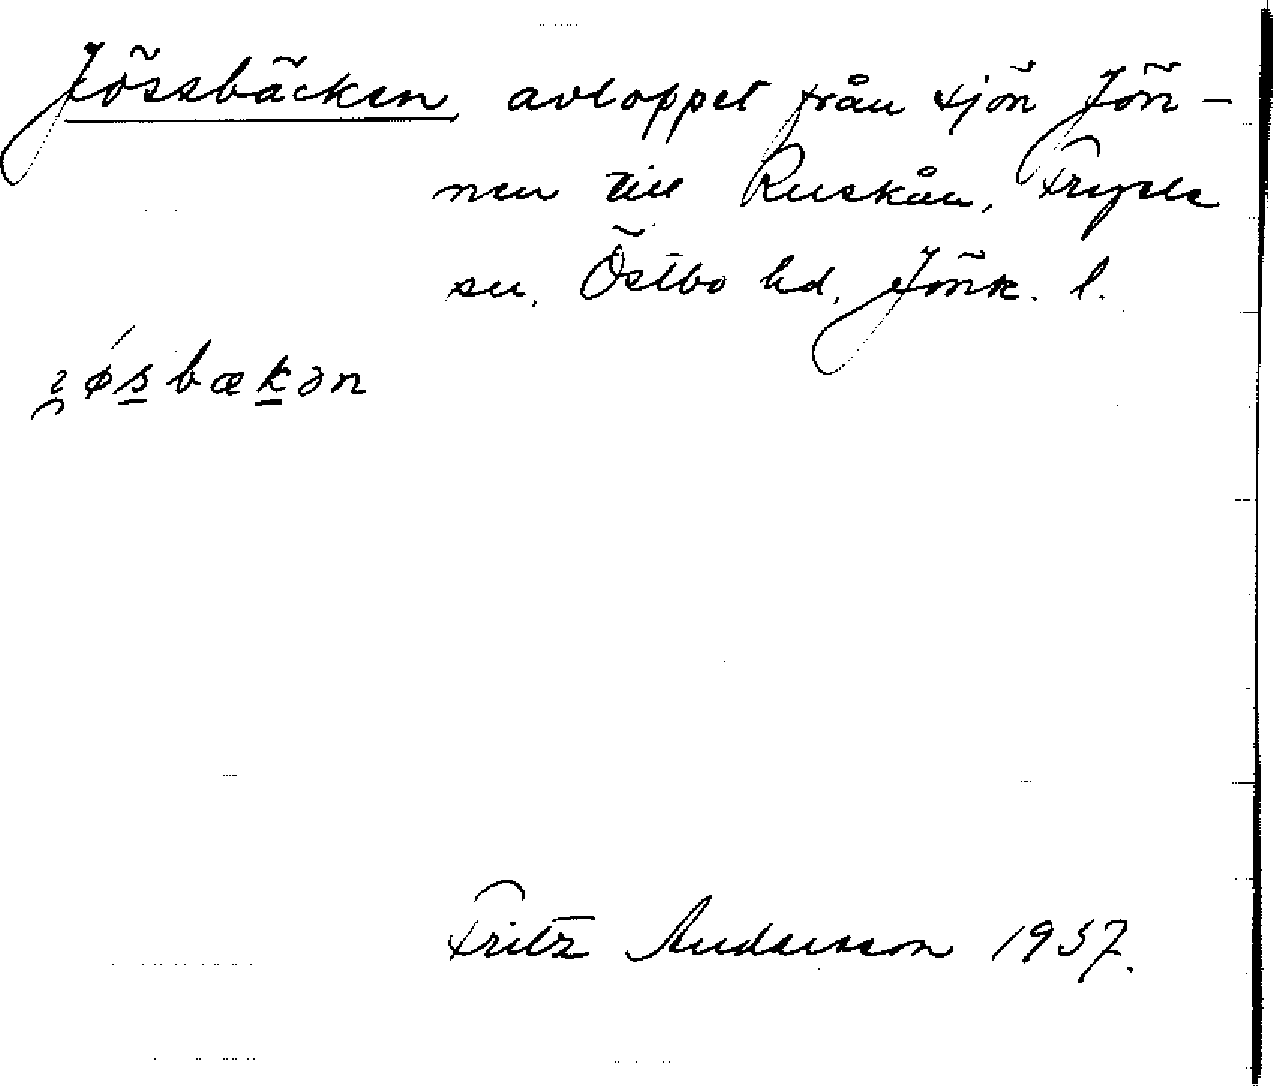 Jössbäcken, avloppet från sjön Jön-
nen till Ruskån, Fryele
sn, Östbo hd, Jönk. l.
Fritz Andersson 1937.